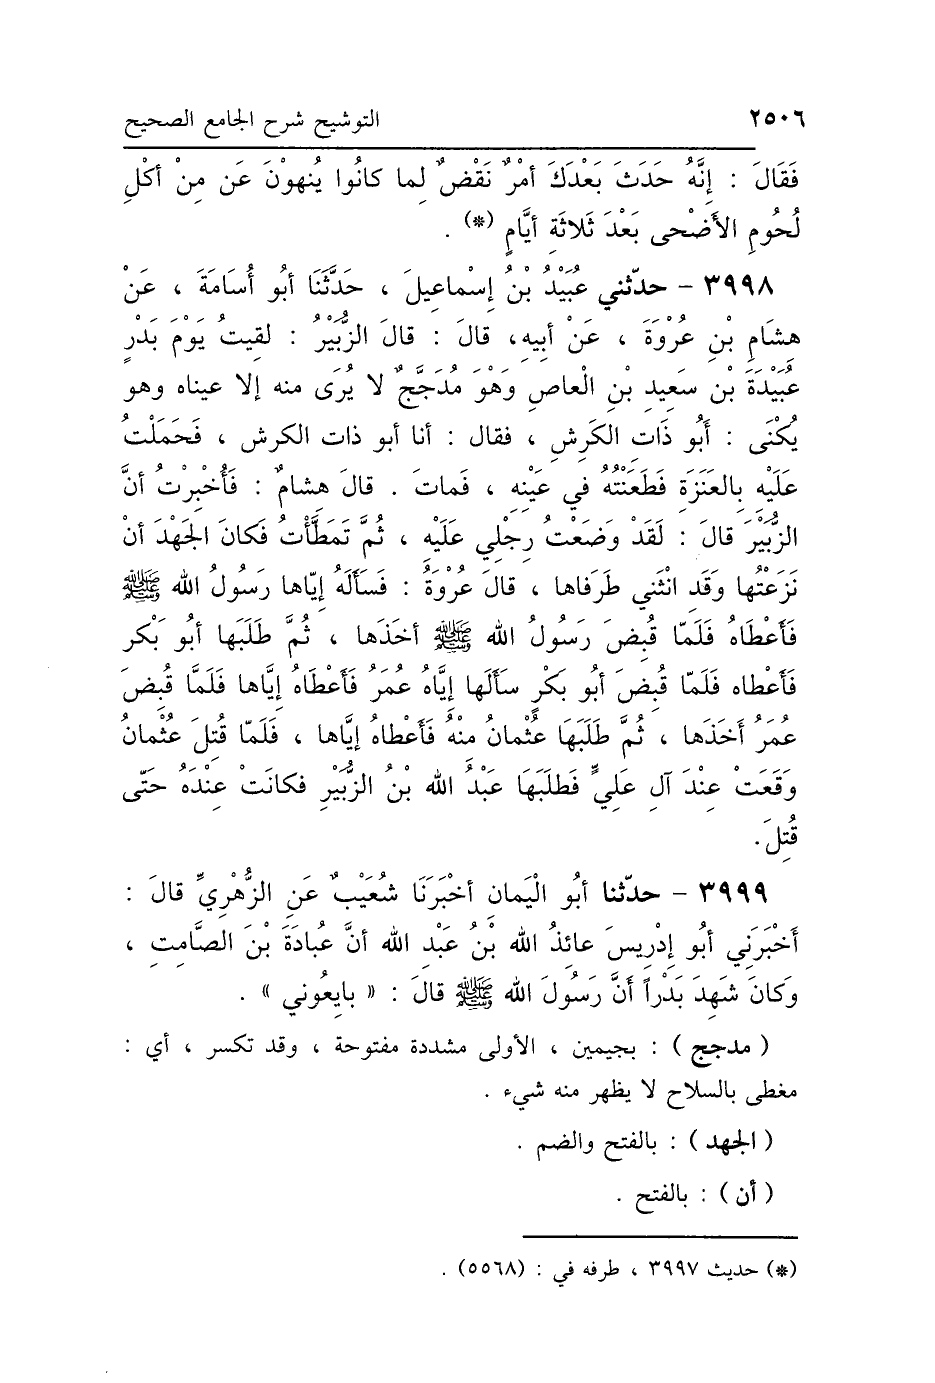 ٢٥٠٦ التوشيح شرح الجامع الصحيح
فَقَالَ : إِنَّهُ حَدَثَ بَعْدَكَ أمْرٌ نَقْضٌ لِما كانُوا يُنهوْنَ عَن مِنْ أكْلِ
لُحُومِ الأَضْحى بَعْدَ ثَلاثَةِ أيَّامٍ (*) .
٣٩٩٨ - حدّثني عُبَيْدُ بْنُ إسْماعيلَ ، حَدَّثَنَا أبُو أُسَامَةَ ، عَنْ
هِشَامِ بْنِ عُرْوَةَ ، عَنْ أبيهِ، قالَ : قالَ الزُّبَيْرُ : لَقيتُ يَوْمَ بَدْرٍ
عُبَيْدَةَ بْن سَعِيدِ بْنِ الْعاصِ وَهْوَ مُدَجَّجٌ لا يُرَى منه إلا عيناه وهو
يُكْنَى : أَبُو ذَاتِ الكَرِشِ ، فقال : أنا أبو ذات الكرش ، فَحَمَلْتُ
عَلَيْهِ بِالعَنَزَةِ فَطَعَنْتُهُ في عَيْنِهِ ، فَماتَ . قالَ هِشامٌ : فَأُخْبِرْتُ أنَّ
الزُّبَيْرَ قالَ : لَقَدْ وَضَعْتُ رِجْلي عَلَيْهِ ، ثُمَّ تَمَطَّأْتُ فَكانَ الجَهْدَ أنْ
نَزَعْتُها وَقَدِ انْثَني طَرَفاها ، قالَ عُرْوَةُ : فَسَأَلَهُ إيّاها رَسُولُ الله ﷺ
فَأَعْطَاهُ فَلَمّا قُبِضَ رَسُولُ الله ﷺ أخَذَها ، ثُمَّ طَلَبَها أبُو بَكْرٍ
فَأَعْطاه فَلَمّا قُبِضَ أبُو بَكْرٍ سَأَلَها إيَّاهُ عُمَرُ فَأَعْطَاهُ إيَّاها فَلَمَّا قُبِضَ
عُمَرُ أَخَذَها ، ثُمَّ طَلَبَهَا عثْمانُ مِنْهُ فَأَعْطاهُ إيَّاها ، فَلَمّا قُتِلَ عثْمانُ
وَقَعَتْ عِنْدَ آلِ عَلِيٍّ فَطَلَبَهَا عَبْدُ الله بْنُ الزُّبَيْرِ فكانَتْ عِنْدَهُ حَتّى
قُتِلَ.
٣٩٩٩ - حدّثنا أَبُو الْيَمانِ أخْبَرَنَا شُعَيْبٌ عَنِ الزُّهْريِّ قالَ :
أَخْبَرَنِي أَبُو إدْرِيسَ عائذُ الله بْنُ عَبْدِ الله أنَّ عُبادَةَ بْنَ الصَّامِتِ ،
وَكانَ شَهِدَ بَدْراً أنَّ رَسُولَ الله ﷺ قالَ : « بايِعُوني » .
( مدجج ) : بجيمين ، الأولى مشددة مفتوحة ، وقد تكسر ، أي :
مغطى بالسلاح لا يظهر منه شيء .
( الجهد ) : بالفتح والضم .
( أن ) : بالفتح .
(*) حديث ٣٩٩٧ ، طرفه في : (٥٥٦٨) .